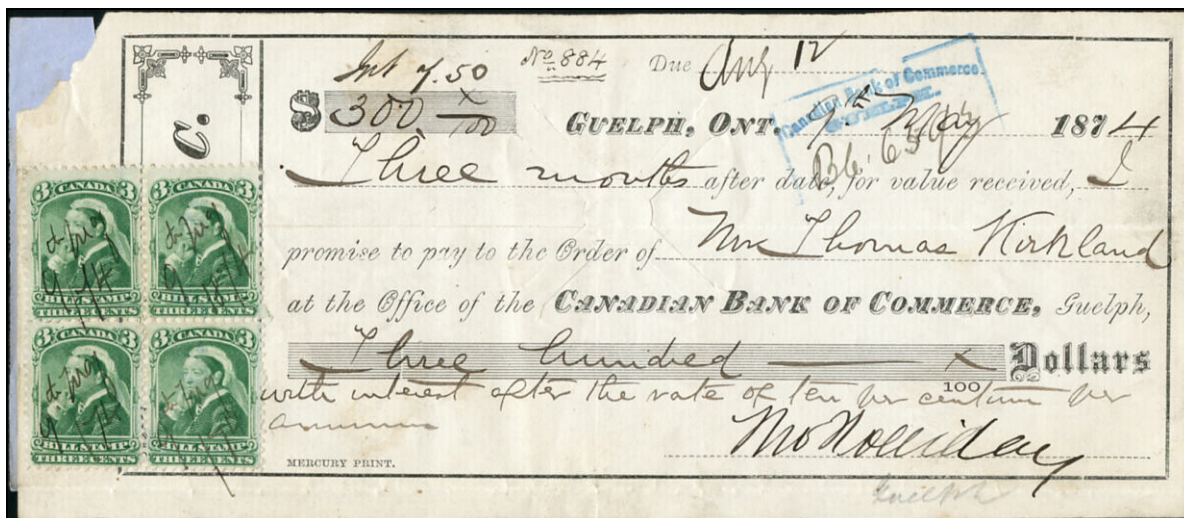 Int 7.50
No. 884
Due Aug 12
$ 300 x/100
Canadian Bank of Commerce.
GUELPH.
GUELPH, ONT. 9th May 1874
C.
Three months after date, for value received, I
promise to pay to the Order of Mr Thomas Kirkland
at the Office of the CANADIAN BANK OF COMMERCE, Guelph,
Three hundred x/100 Dollars
with interest after the rate of ten per centum per
annum
Holliday
MERCURY PRINT.
Guelph
3 CANADA 3
BILL STAMP
THREE CENTS
3 CANADA 3
BILL STAMP
THREE CENTS
3 CANADA 3
BILL STAMP
THREE CENTS
3 CANADA 3
BILL STAMP
THREE CENTS